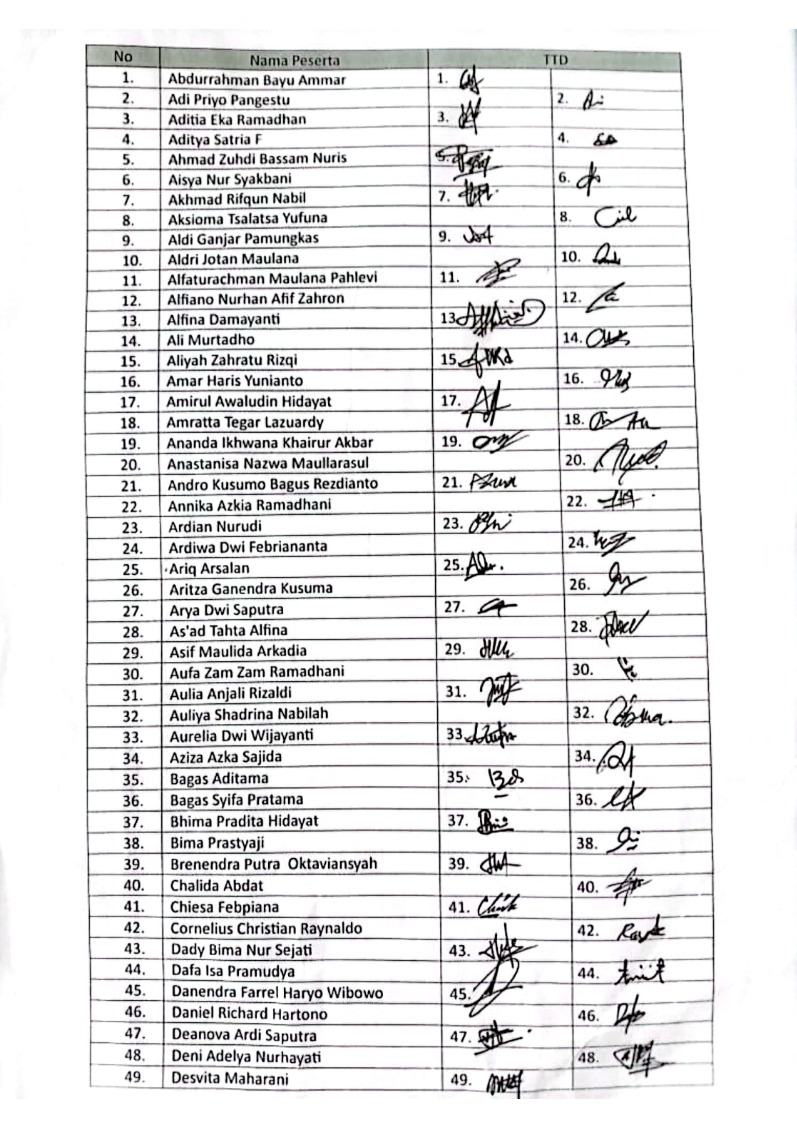 No Nama Peserta TTD
1. Abdurrahman Bayu Ammar 1.
2. Adi Priyo Pangestu 2.
3. Aditia Eka Ramadhan 3.
4. Aditya Satria F 4.
5. Ahmad Zuhdi Bassam Nuris 5.
6. Aisya Nur Syakbani 6.
7. Akhmad Rifqun Nabil 7.
8. Aksioma Tsalatsa Yufuna 8.
9. Aldi Ganjar Pamungkas 9.
10. Aldri Jotan Maulana 10.
11. Alfaturachman Maulana Pahlevi 11.
12. Alfiano Nurhan Afif Zahron 12.
13. Alfina Damayanti 13.
14. Ali Murtadho 14.
15. Aliyah Zahratu Rizqi 15.
16. Amar Haris Yunianto 16.
17. Amirul Awaludin Hidayat 17.
18. Amratta Tegar Lazuardy 18.
19. Ananda Ikhwana Khairur Akbar 19.
20. Anastanisa Nazwa Maullarasul 20.
21. Andro Kusumo Bagus Rezdianto 21.
22. Annika Azkia Ramadhani 22.
23. Ardian Nurudi 23.
24. Ardiwa Dwi Febriananta 24.
25. Ariq Arsalan 25.
26. Aritza Ganendra Kusuma 26.
27. Arya Dwi Saputra 27.
28. As'ad Tahta Alfina 28.
29. Asif Maulida Arkadia 29.
30. Aufa Zam Zam Ramadhani 30.
31. Aulia Anjali Rizaldi 31.
32. Auliya Shadrina Nabilah 32.
33. Aurelia Dwi Wijayanti 33.
34. Aziza Azka Sajida 34.
35. Bagas Aditama 35.
36. Bagas Syifa Pratama 36.
37. Bhima Pradita Hidayat 37.
38. Bima Prastyaji 38.
39. Brenendra Putra Oktaviansyah 39.
40. Chalida Abdat 40.
41. Chiesa Febpiana 41.
42. Cornelius Christian Raynaldo 42.
43. Dady Bima Nur Sejati 43.
44. Dafa Isa Pramudya 44.
45. Danendra Farrel Haryo Wibowo 45.
46. Daniel Richard Hartono 46.
47. Deanova Ardi Saputra 47.
48. Deni Adelya Nurhayati 48.
49. Desvita Maharani 49.